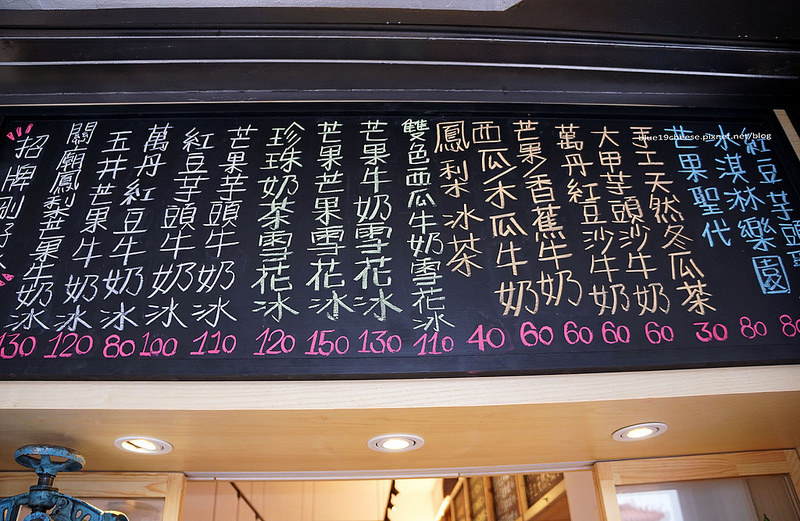 紅豆芋頭聖
冰淇淋樂園
芒果聖代
手工天然冬瓜茶
大甲芋頭沙牛奶
萬丹紅豆沙牛奶
芒果/香蕉牛奶
西瓜/木瓜牛奶
鳳梨冰茶
雙色西瓜牛奶雪花冰
芒果牛奶雪花冰
芒果芒果雪花冰
珍珠奶茶雪花冰
芒果芋頭牛奶冰
紅豆芋頭牛奶冰
萬丹紅豆牛奶冰
玉井芒果牛奶冰
關廟鳳梨芒果牛奶冰
招牌剛好冰
130 120 80 100 110 120 150 130 110 40 60 60 60 60 30 80 80
blue19cheese.pixnet.net/blog